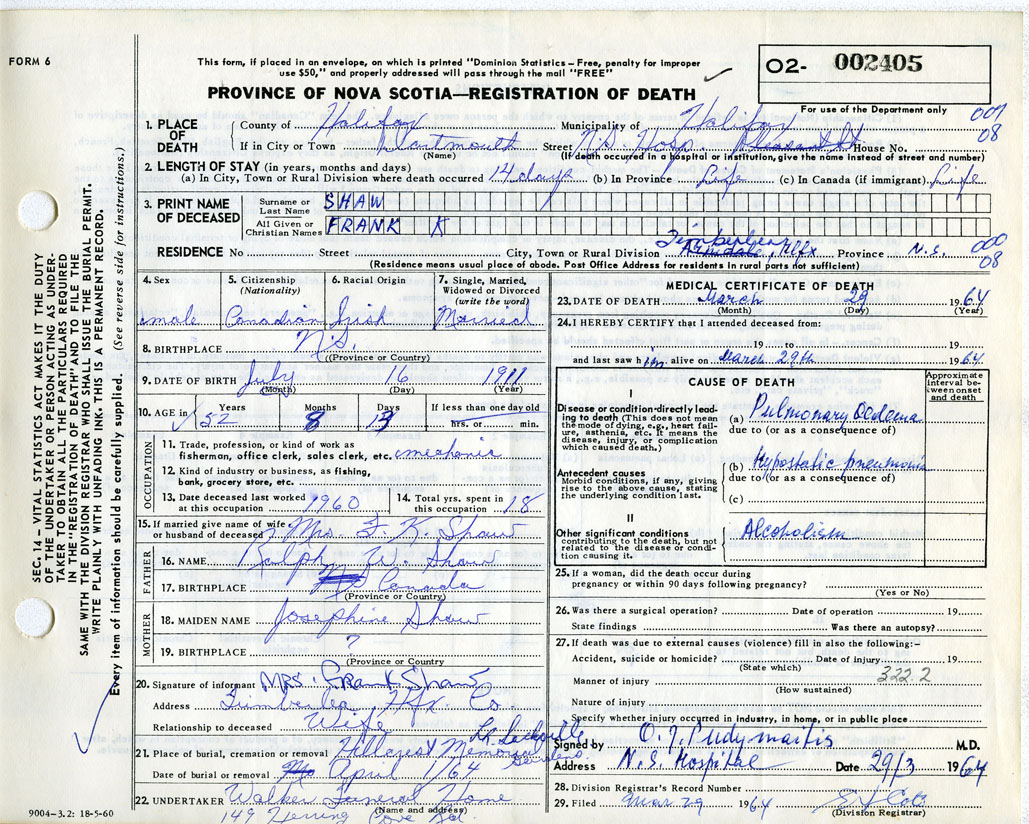 FORM 6
This form, if placed in an envelope, on which is printed "Dominion Statistics – Free, penalty for improper
use $50," and properly addressed will pass through the mail "FREE"
O2- 002405
PROVINCE OF NOVA SCOTIA—REGISTRATION OF DEATH
For use of the Department only
007
08
1. PLACE OF DEATH
County of Halifax Municipality of Halifax
If in City or Town Dartmouth Street N.S. Hosp. Pleasant St House No.
(Name) (If death occurred in a hospital or institution, give the name instead of street and number)
2. LENGTH OF STAY (in years, months and days)
(a) In City, Town or Rural Division where death occurred 14 days (b) In Province Life (c) In Canada (if immigrant) Life
3. PRINT NAME OF DECEASED
Surname or Last Name SHAW
All Given or Christian Names FRANK K
Timberlea
RESIDENCE No Street City, Town or Rural Division Armdale, Hlfx Province N.S. 000
08
(Residence means usual place of abode. Post Office Address for residents in rural parts not sufficient)
SEC. 14 – VITAL STATISTICS ACT MAKES IT THE DUTY
OF THE UNDERTAKER OR PERSON ACTING AS UNDER-
TAKER TO OBTAIN ALL THE PARTICULARS REQUIRED
IN THE "REGISTRATION OF DEATH" AND TO FILE THE
SAME WITH THE DIVISION REGISTRAR WHO SHALL ISSUE THE BURIAL PERMIT.
WRITE PLAINLY WITH UNFADING INK. THIS IS A PERMANENT RECORD.
Every item of information should be carefully supplied. (See reverse side for instructions.)
4. Sex male
5. Citizenship (Nationality) Canadian
6. Racial Origin Irish
7. Single, Married, Widowed or Divorced (write the word) Married
8. BIRTHPLACE N.S.
(Province or Country)
9. DATE OF BIRTH July 16 1911
(Month) (Day) (Year)
10. AGE in Years 52 Months 8 Days 13 If less than one day old hrs. or min.
OCCUPATION
11. Trade, profession, or kind of work as
fisherman, office clerk, sales clerk, etc. mechanic
12. Kind of industry or business, as fishing,
bank, grocery store, etc.
13. Date deceased last worked at this occupation 1960
14. Total yrs. spent in this occupation 18
15. If married give name of wife or husband of deceased Mrs. F. K. Shaw
FATHER
16. NAME Ralph W. Shaw
17. BIRTHPLACE Canada
(Province or Country)
MOTHER
18. MAIDEN NAME Josephine Shaw
19. BIRTHPLACE ?
(Province or Country)
20. Signature of informant MRS. Frank Shaw
Address Timberlea Hfx. Co.
Relationship to deceased Wife
21. Place of burial, cremation or removal Hillcrest Memorial Gardens Lr. Sackville
Date of burial or removal April 1/64
22. UNDERTAKER Walker Funeral Home
(Name and address)
149 Herring Cove Rd.
9004–3.2: 18-5-60
MEDICAL CERTIFICATE OF DEATH
23. DATE OF DEATH March 29 1964
(Month) (Day) (Year)
24. I HEREBY CERTIFY that I attended deceased from:
19 to 19
and last saw him alive on March 29th 1964
CAUSE OF DEATH
Approximate interval between onset and death
I
Disease or condition directly leading to death (This does not mean the mode of dying, e.g., heart failure, asthenia, etc. It means the disease, injury, or complication which caused death.)
(a) Pulmonary Oedema
due to (or as a consequence of)
Antecedent causes
Morbid conditions, if any, giving rise to the above cause, stating the underlying condition last.
(b) Hypostatic pneumonia
due to (or as a consequence of)
(c)
II
Other significant conditions
contributing to the death, but not related to the disease or condition causing it.
Alcoholism
25. If a woman, did the death occur during
pregnancy or within 90 days following pregnancy?
(Yes or No)
26. Was there a surgical operation? Date of operation 19
State findings Was there an autopsy?
27. If death was due to external causes (violence) fill in also the following:–
Accident, suicide or homicide? Date of injury 19
(State which)
Manner of injury 322.2
(How sustained)
Nature of injury
Specify whether injury occurred in industry, in home, or in public place
Signed by O. J. Pudymaitis M.D.
Address N.S. Hospital Date 29/3 1964
28. Division Registrar's Record Number
29. Filed Mar 29 1964
(Division Registrar)